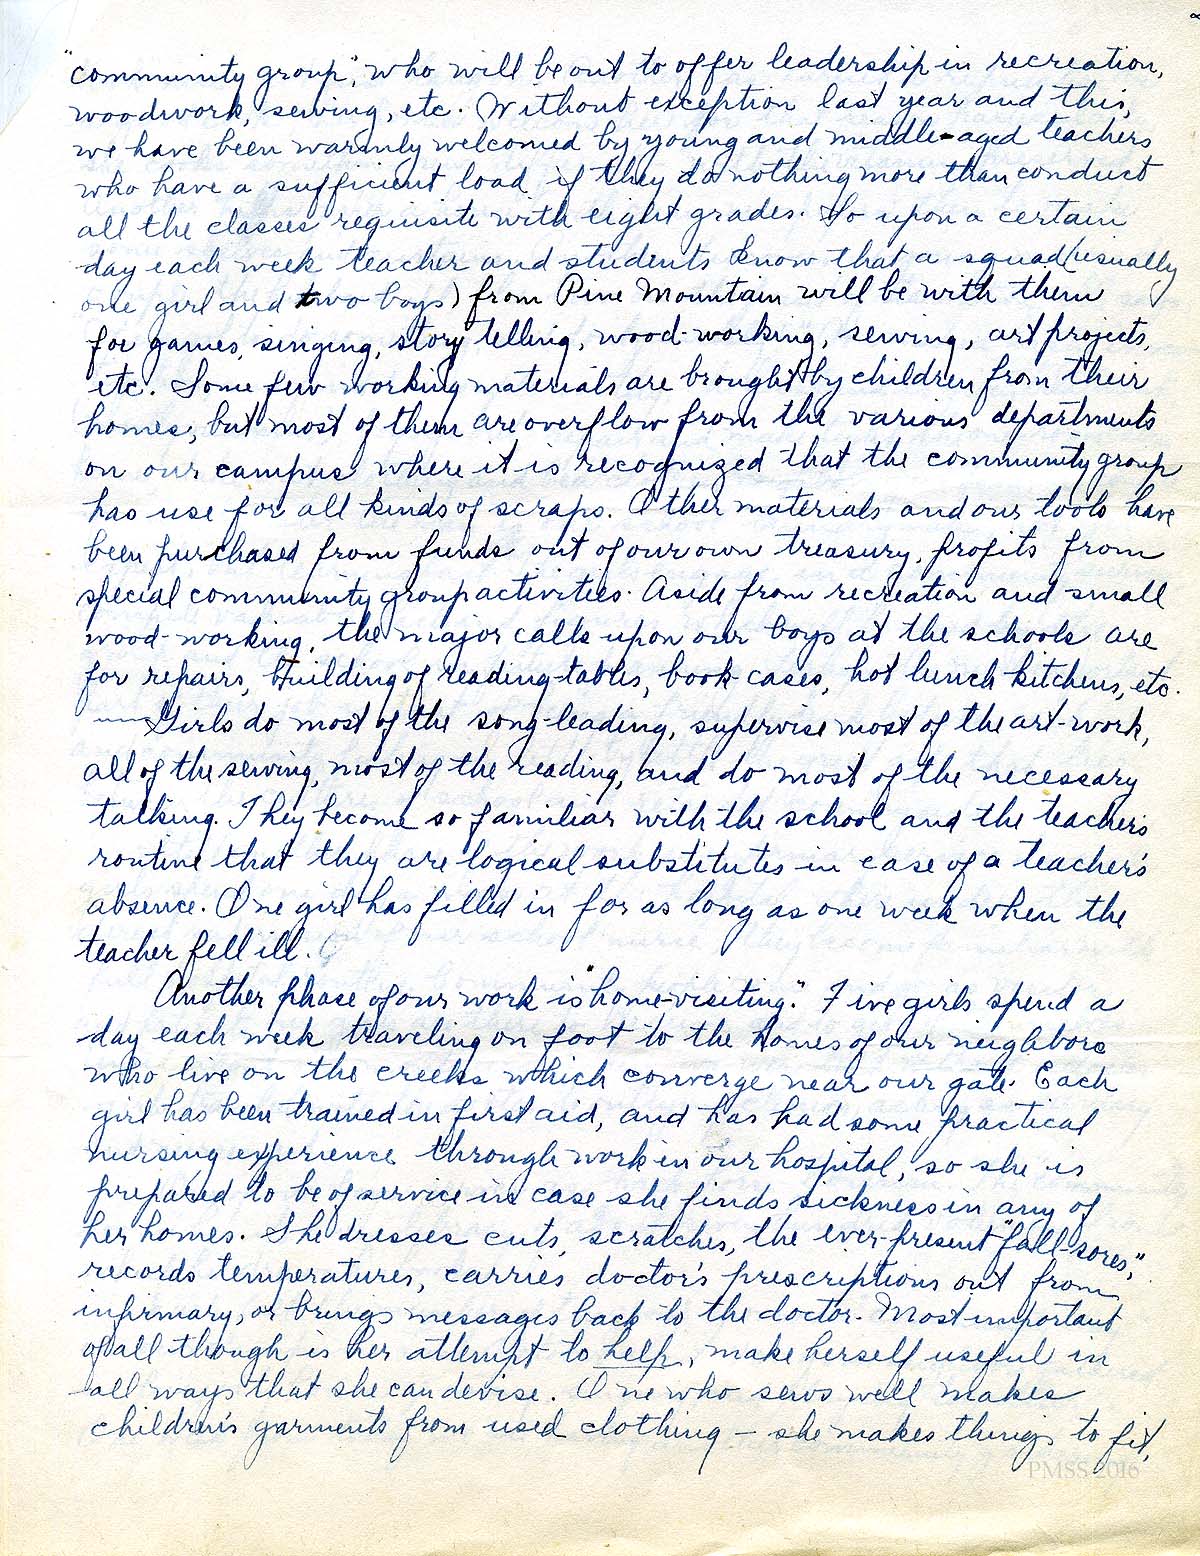 "community group", who will be out to offer leadership in recreation,
woodwork, sewing, etc. Without exception last year and this,
we have been warmly welcomed by young and middle-aged teachers
who have a sufficient load if they do nothing more than conduct
all the classes requisite with eight grades. So upon a certain
day each week teacher and students know that a squad (usually
one girl and two boys) from Pine Mountain will be with them
for games, singing, story telling, wood-working, sewing, art projects,
etc. Some few working materials are brought by children from their
homes, but most of them are overflow from the various departments
on our campus where it is recognized that the community group
has use for all kinds of scraps. Other materials and our tools have
been purchased from funds out of our own treasury, profits from
special community group activities. Aside from recreation and small
wood-working, the major calls upon our boys at the schools are
for repairs, building of reading-tables, book-cases, hot lunch kitchens, etc.
Girls do most of the song-leading, supervise most of the art-work,
all of the sewing, most of the reading, and do most of the necessary
talking. They become so familiar with the school and the teacher's
routine that they are logical substitutes in case of a teacher's
absence. One girl has filled in for as long as one week when the
teacher fell ill.
Another phase of our work is "home-visiting." Five girls spend a
day each week traveling on foot to the homes of our neighbors
who live on the creeks which converge near our gate. Each
girl has been trained in first aid, and has had some practical
nursing experience through work in our hospital, so she is
prepared to be of service in case she finds sickness in any of
her homes. She dresses cuts, scratches, the ever-present "fall-sores,"
records temperatures, carries doctor's prescriptions out from
infirmary, or brings messages back to the doctor. Most important
of all though is her attempt to help, make herself useful in
all ways that she can devise. One who sews well makes
children's garments from used clothing – she makes things to fit,
PMSS 2016